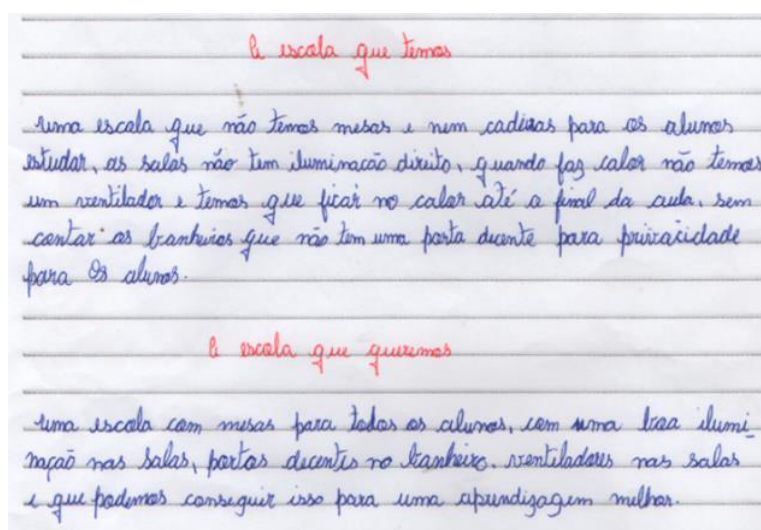 A escola que temos
uma escola que não temos mesas e nem cadiras para os alunos
estudar, as salas não tem iluminacão direito, quando faz calor não temos
um ventilador e temos que ficar no calor até o final da aula, sem
contar os banheiros que não tem uma porta decente para privacidade
para os alunos.
A escola que queremos
uma escola com mesas para todos os alunos, com uma boa ilumi-
nação nas salas, portas decentes no banheiro, ventiladores nas salas
e que podemos conseguir isso para uma aprendizagem melhor.